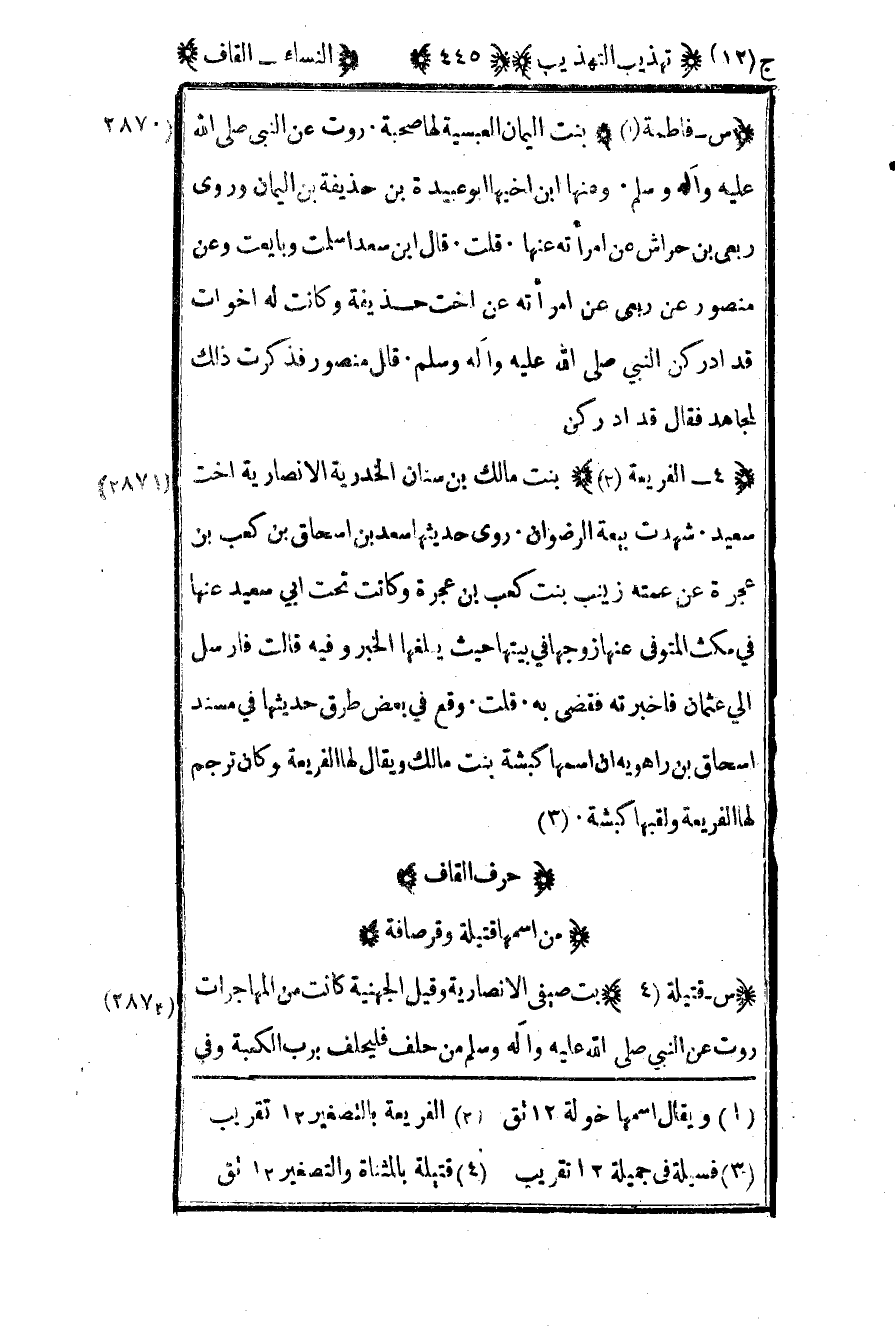 ج (١٢) ﴿ تهذيب التهذيب ﴾ ﴿ ٤٤٥ ﴾ ﴿ النساء ــ القاف ﴾
﴿ س ـ فاطمة (١) ﴾ بنت اليمان العبسية لها صحبة ٠ روت عن النبى صلى الله (٢٨٧٠
عليه وآله وسلم ٠ وعنها ابن اخيها ابو عبيدة بن حذيفة بن اليمان وروى
ربعى بن حراش عن امرأته عنها ٠ قلت ٠ قال ابن سعد اسلمت وبايعت وعن
منصور عن ربعى عن امرأته عن اخت حذيفة وكانت له اخوات
قد ادركن النبي صلى الله عليه وآله وسلم ٠ قال منصور فذكرت ذلك
لمجاهد فقال قد ادركن
﴿ ٤ ــ الفريعة (٢) ﴾ بنت مالك بن سنان الخدرية الانصارية اخت (٢٨٧١)
سعيد ٠ شهدت بيعة الرضوان ٠ روى حديثها سعد بن اسحاق بن كعب بن
عجرة عن عمته زينب بنت كعب بن عجرة وكانت تحت ابي سعيد عنها
في مكث المتوفى عنها زوجها في بيتها حيث يبلغها الخبر وفيه قالت فارسل
الي عثمان فاخبرته فقضى به ٠ قلت ٠ وقع في بعض طرق حديثها في مسند
اسحاق بن راهويه ان اسمها كبشة بنت مالك ويقال لها الفريعة وكان ترجم
لها الفريعة ولقبها كبشة ٠ (٣)
﴿ حرف القاف ﴾
﴿ من اسمها قتيلة وقرصافة ﴾
﴿ س ـ قتيلة (٤ ﴾ بت صيفى الانصارية وقيل الجهنية كانت من المهاجرات (٢٨٧٢)
روت عن النبي صلى الله عليه وآله وسلم من حلف فليحلف برب الكعبة وفي
(١) ويقال اسمها خولة ١٢ تق (٢) الفريعة بالتصغير ١٢ تقريب
(٣) فسيلة فى جميلة ١٢ تقريب (٤) قتيلة بالمثناة والتصغير ١٢ تق